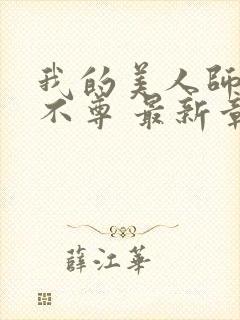 我的美人師
不尊 最新章
薛江華